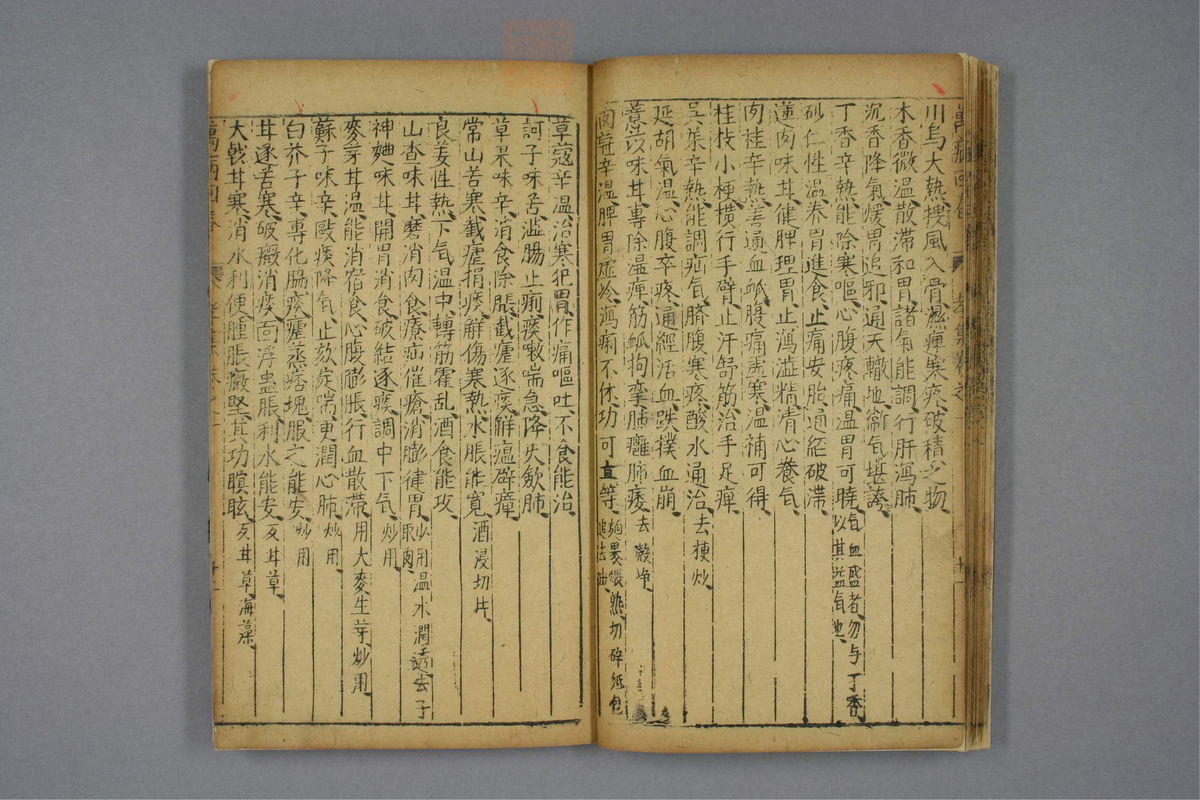 川烏大熱搜風入骨濕痺寒疼破積之物
木香微温散滯和胃諸氣能調行肝瀉肺
沉香降氣煖胃追邪通天徹地衛气堪誇
丁香辛熱能除寒嘔心腹疼痛温胃可曉 气血盛者勿与丁香以其益气也
砂仁性温养胃進食止痛安胎通經破滯
蓮肉味甘健脾理胃止瀉澁精清心養气
肉桂辛熱善通血脉腹痛虗寒温補可得
桂枝小梗横行手臂止汗舒筋治手足痺
吳茱辛熱能調疝气臍腹寒疼酸水通治 去梗炒
延胡氣温心腹卒疼通經活血跌撲血崩
薏苡味甘專除温痺筋脉拘挛肺癰肺痿 去殼净
肉蔻辛温脾胃虗冷瀉痢不休功可直等 麫裹煨熟切碎紙包
草蔻辛温治寒犯胃作痛嘔吐不食能治
訶子味苦澁腸止痢痰嗽喘急降火歛肺
草果味辛消食除脹截瘧逐痰解瘟辟瘴
常山苦寒截瘧捐痰解傷寒熱水脹能寛 酒浸切片
良姜性熱下气温中轉筋霍乱酒食能攻
山查味甘磨消肉食療疝催瘡消膨健胃 炒用温水潤透去子取肉
神麯味甘開胃消食破結逐痰調中下气 炒用
麥芽甘温能消宿食心腹膨脹行血散滯 用大麥生芽炒用
蘇子味辛敺痰降气止欬定喘更潤心肺 炒用
白芥子辛專化脇痰瘧蒸痞塊服之能安 炒用
甘遂苦寒破癥消痰面浮蠱脹利水能安 反甘草
大戟甘寒消水利便腫脹癥堅其功瞑眩 反甘草海藻